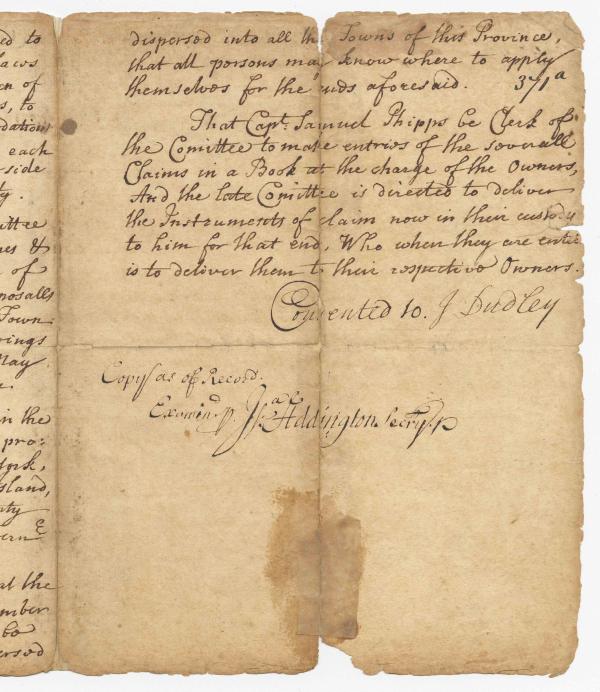 ed to
laws
en of
s, to
dations
each
side
ty.
ittee
nes &
of
posalls
Town
rings
May
e.
in the
pro:
York,
sland,
nty
vern
at the
mber
be
ersed
dispersed into all th Towns of this Province,
that all persons may know where to apply
themselves for the ends aforesaid. 371a
That Capt. Samuel Phipps be Clerk of
the Comittee to make entries of the severall
Claims in a Book at the charge of the Owners,
And the late Comittee is directed to deliver
the Instruments of claim now in their custody
to him for that end, Who when they are ente
is to deliver them to their respective Owners.
Consented to. J Dudley
Copy as of Record.
Examind p. Jsa Addington Secry.